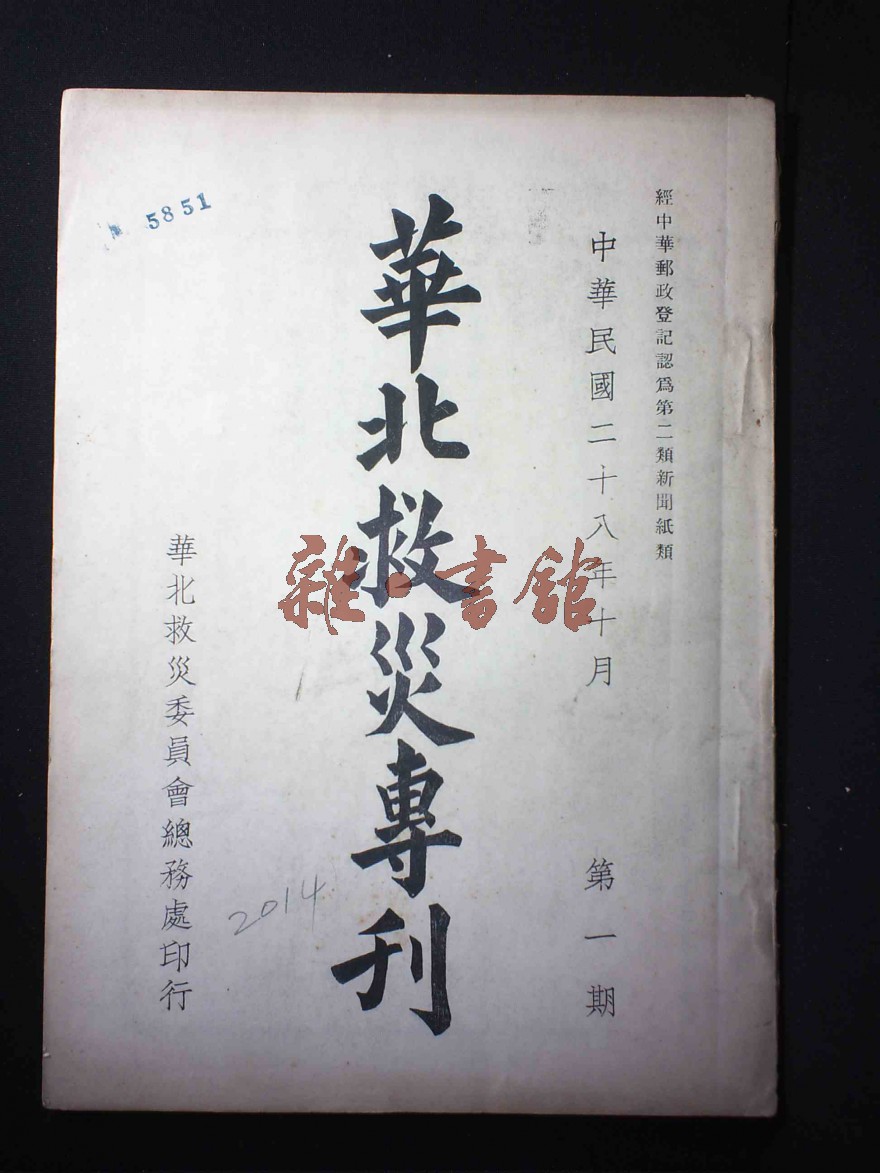 經中華郵政登記認爲第二類新聞紙類
中華民國二十八年十月 第一期
華北救災專刊
華北救災委員會總務處印行
5851
2014
雜·書館